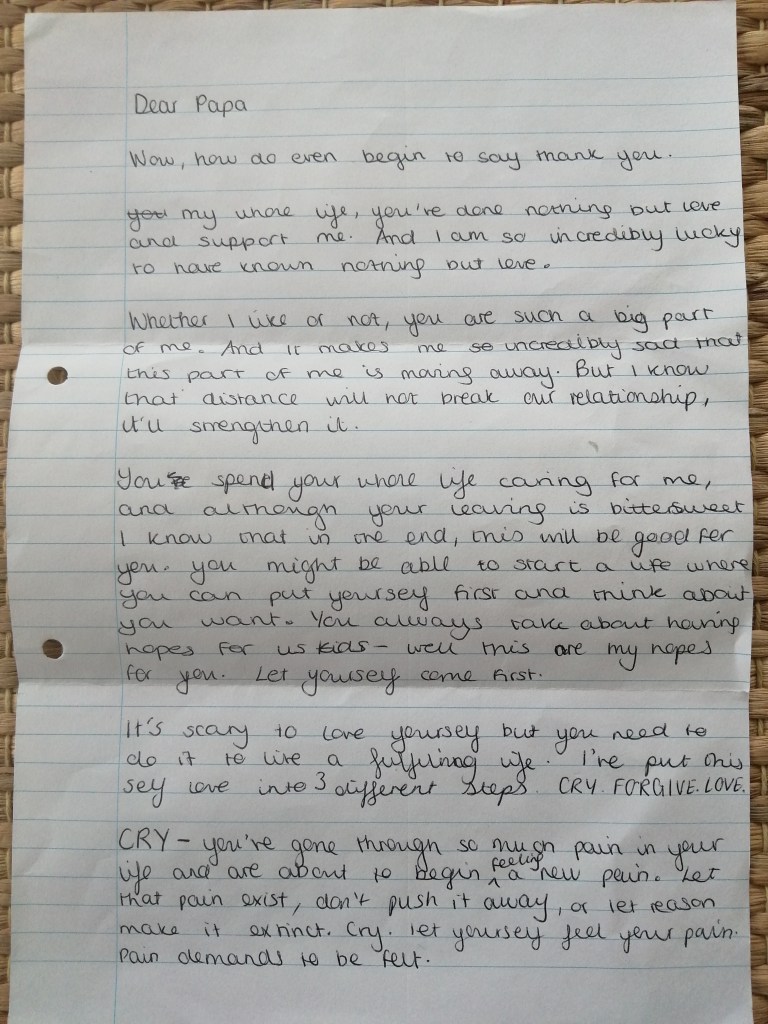 Dear Papa
Wow, how do even begin to say thank you.
you my whole life, you're done nothing but love
and support me. And I am so incredibly lucky
to have known nothing but love.
Whether I like or not, you are such a big part
of me. And it makes me so incredibly sad that
this part of me is moving away. But I know
that distance will not break our relationship,
it'll strengthen it.
You spend your whole life caring for me,
and although your leaving is bittersweet
I know that in the end, this will be good for
you. you might be able to start a life where
you can put yourself first and think about
you want. You always talk about having
hopes for us kids - well this are my hopes
for you. Let yourself come first.
It's scary to love yourself but you need to
do it to live a fulfilling life. I've put this
self love into 3 different steps. CRY. FORGIVE. LOVE.
CRY - you've gone through so much pain in your
life and are about to begin feeling a new pain. Let
that pain exist, don't push it away, or let reason
make it extinct. Cry. let yourself feel your pain.
Pain demands to be felt.